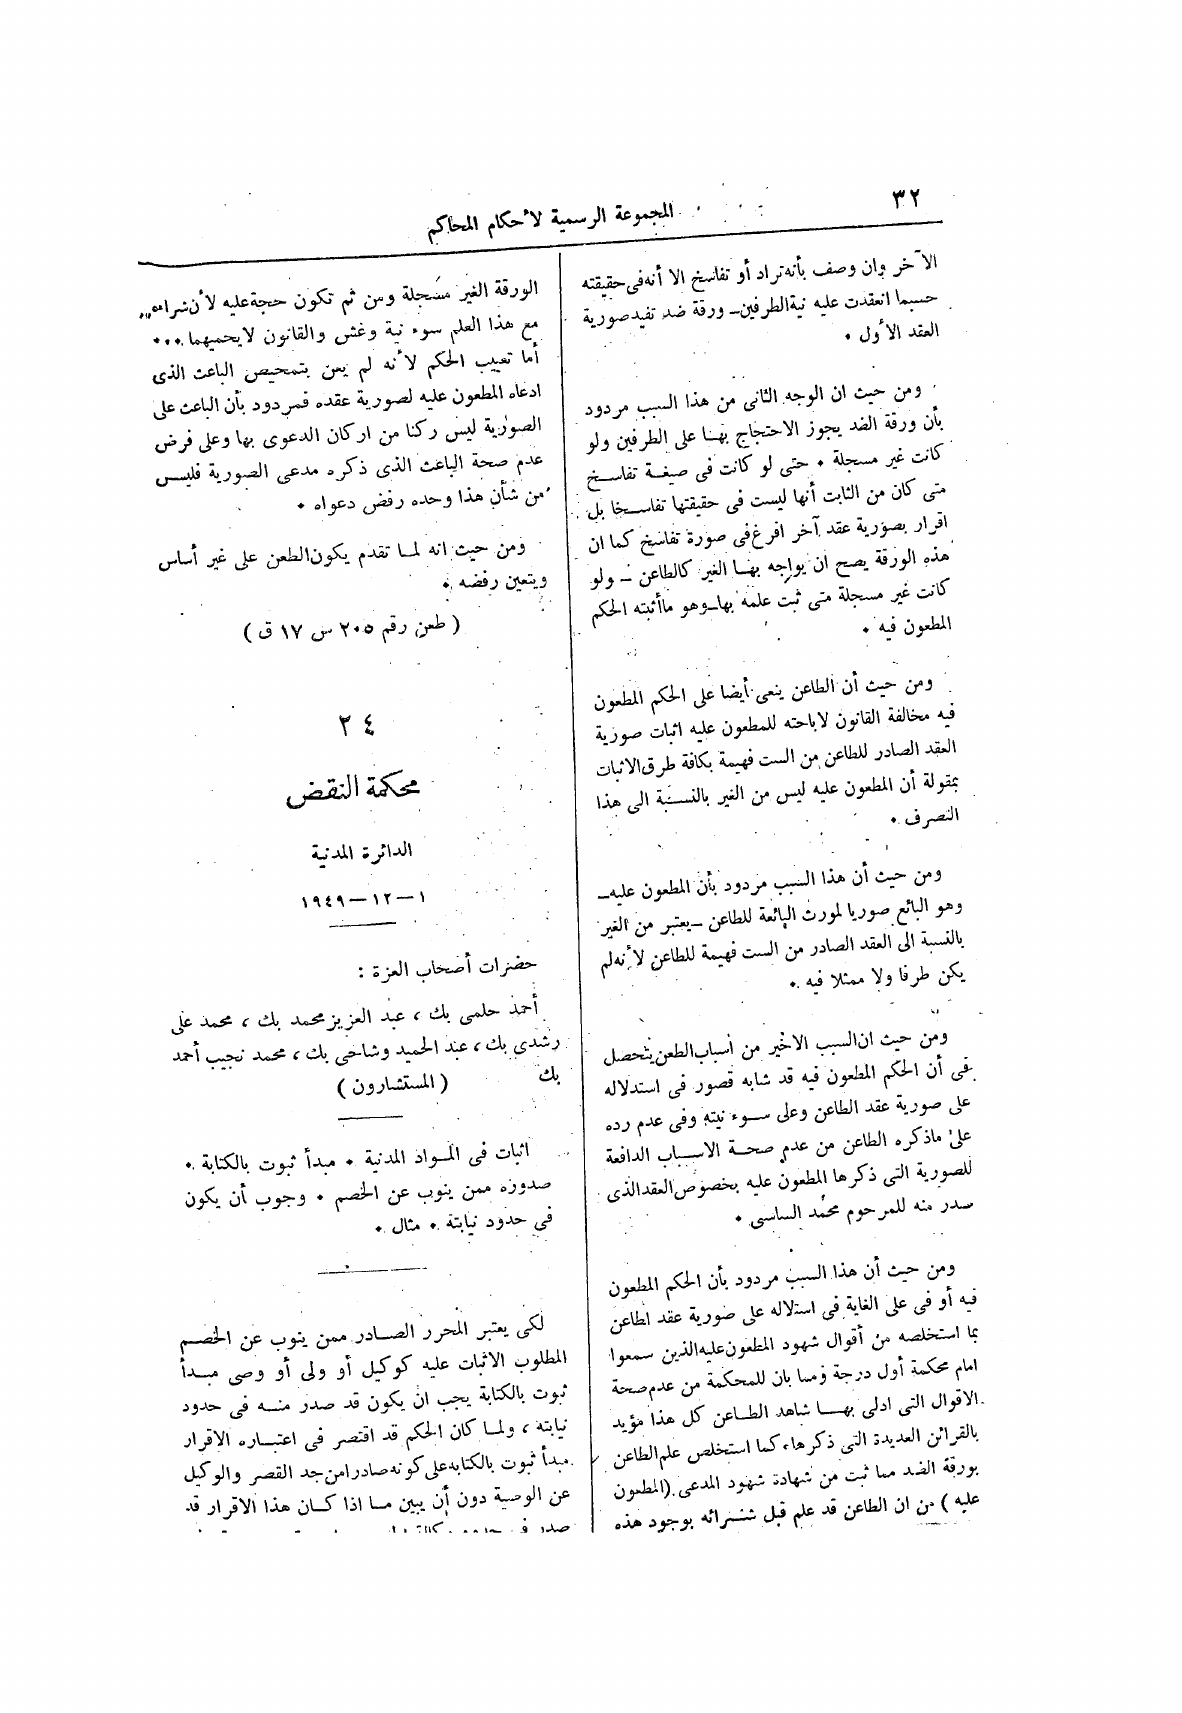 ٣٢
المجموعة الرسمية لأحكام المحاكم
الآخر وان وصف بأنه تراد أو تفاسخ الا أنه فى حقيقته
حسبما انعقدت عليه نية الطرفين — ورقة ضد تفيد صورية
العقد الأول .
ومن حيث ان الوجه الثانى من هذا السبب مردود
بأن ورقة الضد يجوز الاحتجاج بها على الطرفين ولو
كانت غير مسجلة . حتى لو كانت فى صيغة تفاسخ
متى كان من الثابت أنها ليست فى حقيقتها تفاسخا بل
اقرار بصورية عقد آخر افرغ فى صورة تفاسخ كما ان
هذه الورقة يصح ان يواجه بها الغير كالطاعن — ولو
كانت غير مسجلة متى ثبت علمه بها — وهو ما أثبته الحكم
المطعون فيه .
ومن حيث أن الطاعن ينعى أيضا على الحكم المطعون
فيه مخالفة القانون لاباحته للمطعون عليه اثبات صورية
العقد الصادر للطاعن من الست فهيمة بكافة طرق الاثبات
بمقولة أن المطعون عليه ليس من الغير بالنسبة الى هذا
التصرف .
ومن حيث أن هذا السبب مردود بأن المطعون عليه —
وهو البائع صوريا لمورث البائعة للطاعن — يعتبر من الغير
بالنسبة الى العقد الصادر من الست فهيمة للطاعن لأنه لم
يكن طرفا ولا ممثلا فيه .
ومن حيث ان السبب الاخير من أسباب الطعن يتحصل
فى أن الحكم المطعون فيه قد شابه قصور فى استدلاله
على صورية عقد الطاعن وعلى سوء نيته وفى عدم رده
على ماذكره الطاعن من عدم صحة الاسباب الدافعة
للصورية التى ذكرها المطعون عليه بخصوص العقد الذى
صدر منه للمرحوم محمد الساسى .
ومن حيث أن هذا السبب مردود بأن الحكم المطعون
فيه أو فى على الغاية فى استلاله على صورية عقد اطاعن
بما استخلصه من أقوال شهود المطعون عليه الذين سمعوا
امام محكمة أول درجة ومما بان للمحكمة من عدم صحة
الاقوال التى ادلى بها شاهد الطاعن كل هذا مؤيد
بالقرائن العديدة التى ذكرها، كما استخلص علم الطاعن
بورقة الضد مما ثبت من شهادة شهود المدعى (المطعون
عليه ) من ان الطاعن قد علم قبل شرائه بوجود هذه
الورقة الغير مسجلة ومن ثم تكون حجة عليه لأن شراءه
مع هذا العلم سوء نية وغش والقانون لا يحميهما ...
أما تعييب الحكم لأنه لم يعن بتمحيص الباعث الذى
ادعاه المطعون عليه لصورية عقده فمردود بأن الباعث على
الصورية ليس ركنا من اركان الدعوى بها وعلى فرض
عدم صحة الباعث الذى ذكره مدعى الصورية فليس
من شأن هذا وحده رفض دعواه .
ومن حيث انه لما تقدم يكون الطعن على غير أساس
ويتعين رفضه .
( طعن رقم ٢٠٥ س ١٧ ق )
٢٤
محكمة النقض
الدائرة المدنية
١ — ١٢ — ١٩٤٩
حضرات أصحاب العزة :
أحمد حلمى بك ، عبد العزيز محمد بك ، محمد على
رشدى بك ، عبد الحميد وشاحى بك ، محمد نجيب أحمد
بك ( المستشارون )
اثبات فى المواد المدنية . مبدأ ثبوت بالكتابة .
صدوره ممن ينوب عن الخصم . وجوب أن يكون
فى حدود نيابتة . مثال .
لكى يعتبر المحرر الصادر ممن ينوب عن الخصم
المطلوب الاثبات عليه كوكيل أو ولى أو وصى مبدأ
ثبوت بالكتابة يجب ان يكون قد صدر منه فى حدود
نيابته ، ولما كان الحكم قد اقتصر فى اعتباره الاقرار
مبدأ ثبوت بالكتابه على كونه صادرا من جد القصر والوكيل
عن الوصية دون أن يبين ما اذا كان هذا الاقرار قد
صدر فى حدود